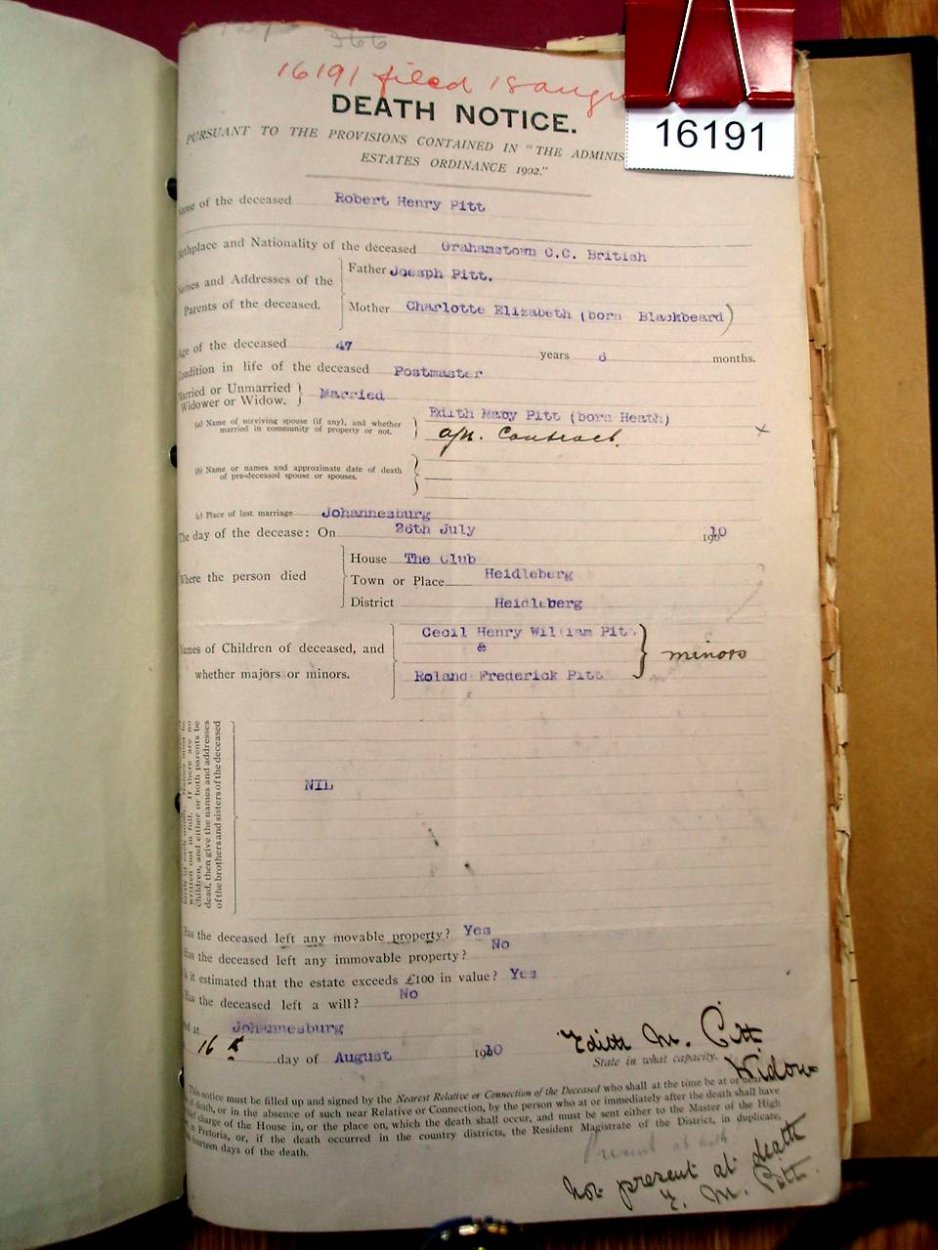 366
16191 filed 18 augu
DEATH NOTICE.
16191
PURSUANT TO THE PROVISIONS CONTAINED IN "THE ADMINIS
ESTATES ORDINANCE 1902."
ame of the deceased Robert Henry Pitt
irthplace and Nationality of the deceased Grahamstown C.C. British
ames and Addresses of the Parents of the deceased.
Father Joseph Pitt.
Mother Charlotte Elizabeth (born Blackbeard)
ge of the deceased 47 years months.
Condition in life of the deceased Postmaster
arried or Unmarried
Widower or Widow. Married
(a) Name of surviving spouse (if any), and whether married in community of property or not.
Edith Mary Pitt (born Heath)
a/n. Contract. x
(b) Name or names and approximate date of death
of pre-deceased spouse or spouses.
(c) Place of last marriage Johannesburg
The day of the decease: On 26th July 1910
Where the person died
House The Club
Town or Place Heidleberg
District Heidleberg
Names of Children of deceased, and
whether majors or minors.
Cecil Henry William Pitt
&
Roland Frederick Pitt
minors
written out in full. If there are no
children, and either or both parents be
dead, then give the names and addresses
of the brothers and sisters of the deceased
NIL
Has the deceased left any movable property? Yes
Has the deceased left any immovable property? No
Is it estimated that the estate exceeds £100 in value? Yes
Has the deceased left a will? No
at Johannesburg
16th day of August 1910
Edith M. Pitt
State in what capacity.
Widow
This notice must be filled up and signed by the Nearest Relative or Connection of the Deceased who shall at the time be at or near
death, or in the absence of such near Relative or Connection, by the person who at or immediately after the death shall have
charge of the House in, or the place on, which the death shall occur, and must be sent either to the Master of the High
Pretoria, or, if the death occurred in the country districts, the Resident Magistrate of the District, in duplicate,
fourteen days of the death.
Not present at death
E. M. Pitt.